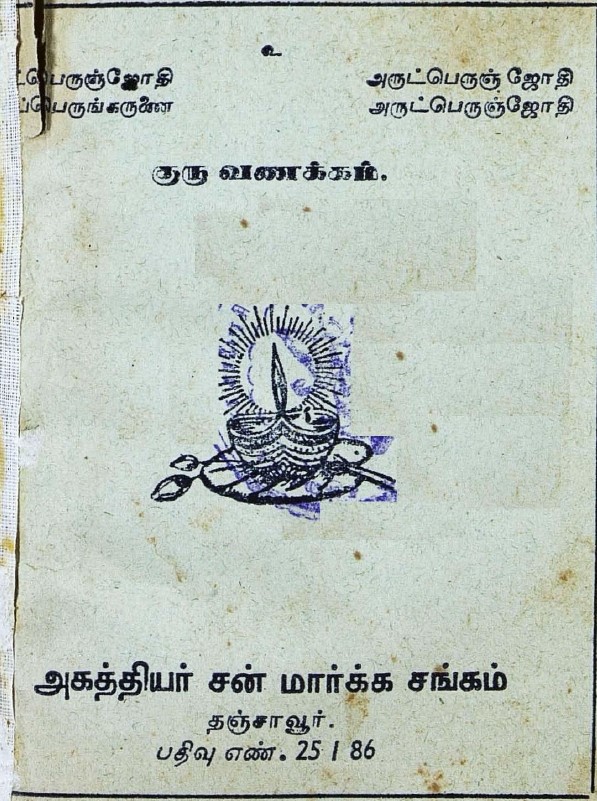 உ
ட்பெருஞ்ஜோதி அருட்பெருஞ் ஜோதி
ப்பெருங்கருனை அருட்பெருஞ்ஜோதி
குரு வணக்கம்.
அகத்தியர் சன் மார்க்க சங்கம்
தஞ்சாவூர்.
பதிவு எண். 25 / 86